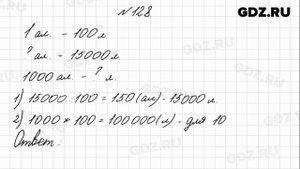 №128
GDZ.RU
1 ал. - 100 л
? ал. - 15000 л.
1000 ал. - ? л.
1) 15000 : 100 = 150 (ал) - 15000 л.
2) 1000 * 100 = 100 000 (л) - для 10
Ответ: